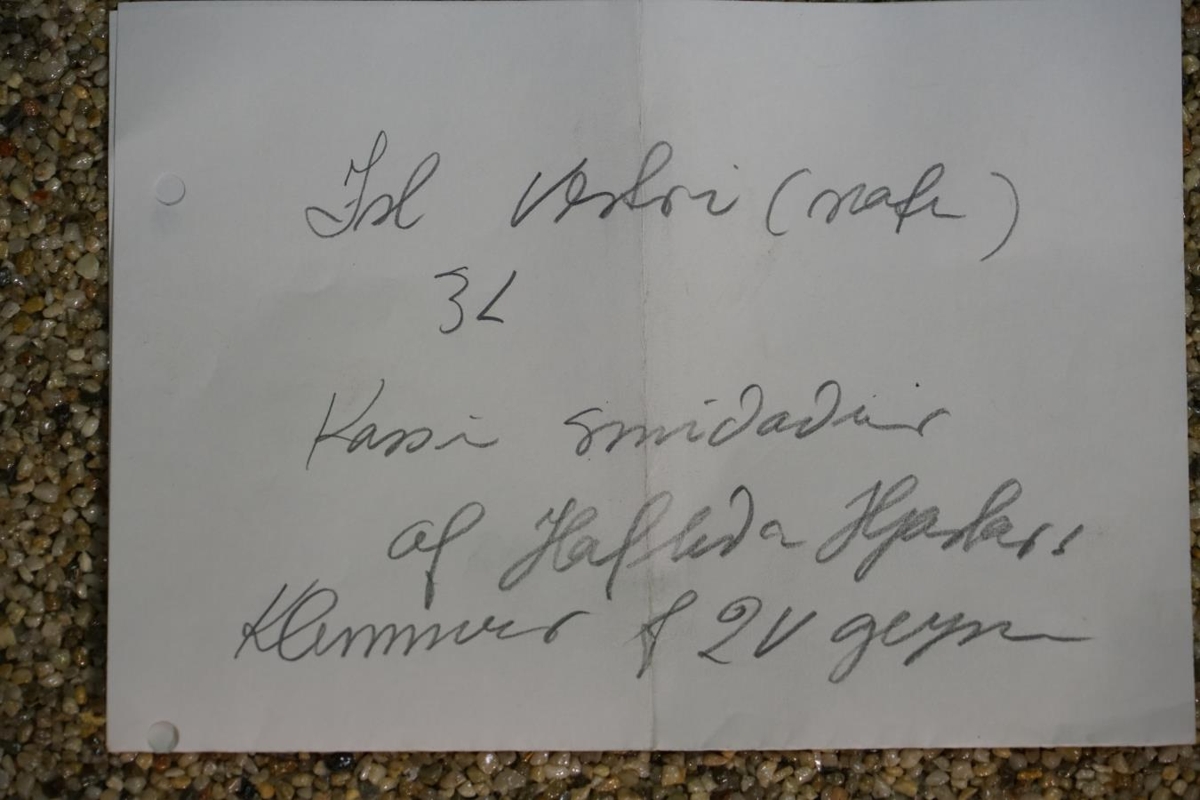 Ísl Vestri (nafn)
3L
Kassi smíðaður
af Hafliða Hjartars
Klemmur f 2V geym